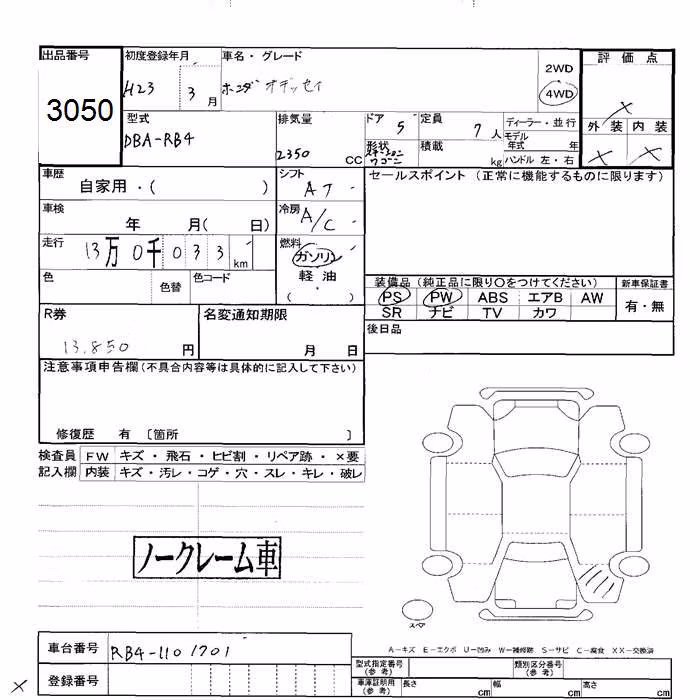 出品番号 初度登録年月 車名・グレード 評価点
3050 H23 3月 ホンダ オデッセイ 2WD 4WD ×
型式 排気量 ドア 定員 ディーラー・並行 外装 内装
DBA-RB4 2350 CC 5 7人 モデル年式 年 × ×
形状 ステーションワゴン 積載 kg ハンドル 左・右
車歴 シフト セールスポイント (正常に機能するものに限ります)
自家用・( ) AT
車検 冷房
年 月( 日) A/C
走行 燃料
13万0千033km ガソリン
色 色替 色コード 軽油
・
( )
装備品 (純正品に限り○をつけてください) 新車保証書
PS PW ABS エアB AW 有・無
SR ナビ TV カワ
R券 名変通知期限 後日品
13.850 円 月 日
注意事項申告欄(不具合内容等は具体的に記入して下さい)
修復歴 有 〔箇所 〕
検査員 FW キズ・飛石・ヒビ割・リペア跡・×要
記入欄 内装 キズ・汚レ・コゲ・穴・スレ・キレ・破レ
ノークレーム車
スペア
A-キズ E-エクボ U-凹み W-補修跡 S-サビ C-腐食 XX-交換済
車台番号 RB4-1101701
登録番号
×
型式指定番号(参考) 類別区分番号(参考)
車庫証明用(参考) 長さ cm 幅 cm 高さ cm